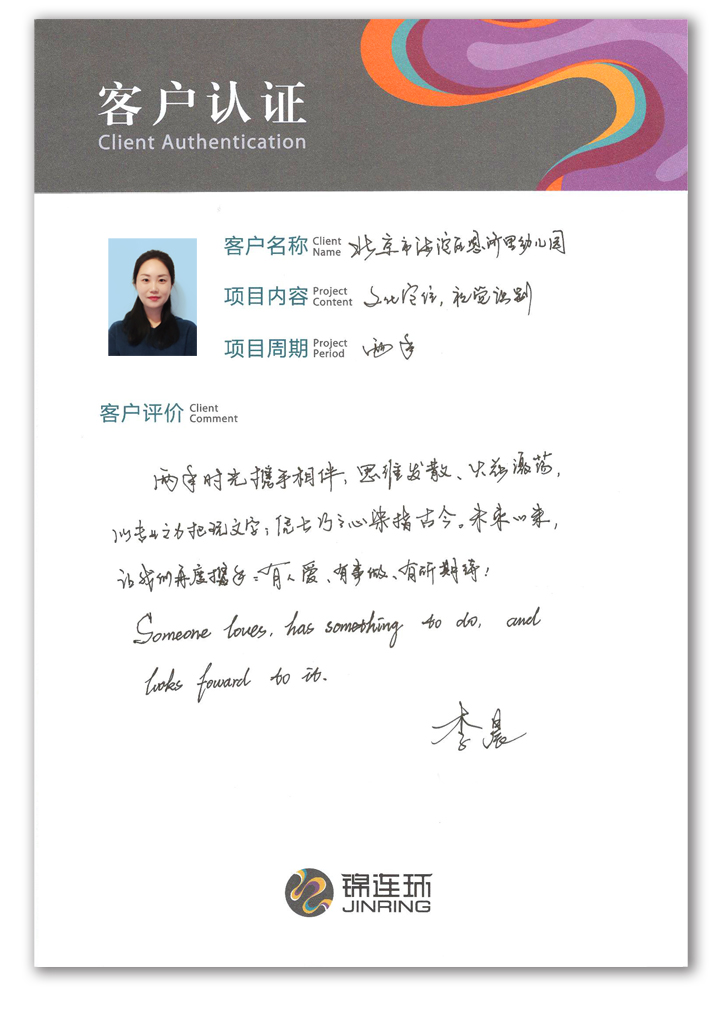 客户认证
Client Authentication
客户名称 Client Name 北京市海淀区恩济里幼儿园
项目内容 Project Content 文化定位,视觉识别
项目周期 Project Period 两年
客户评价 Client Comment
两年时光携手相伴,思维发散、火花激荡,
以专业之力把玩文字;倚长巧之心染指古今。未来以来,
让我们再度携手:有人爱、有事做、有所期待!
Someone loves, has something to do, and
looks foward to it.
李晨
锦连环
JINRING